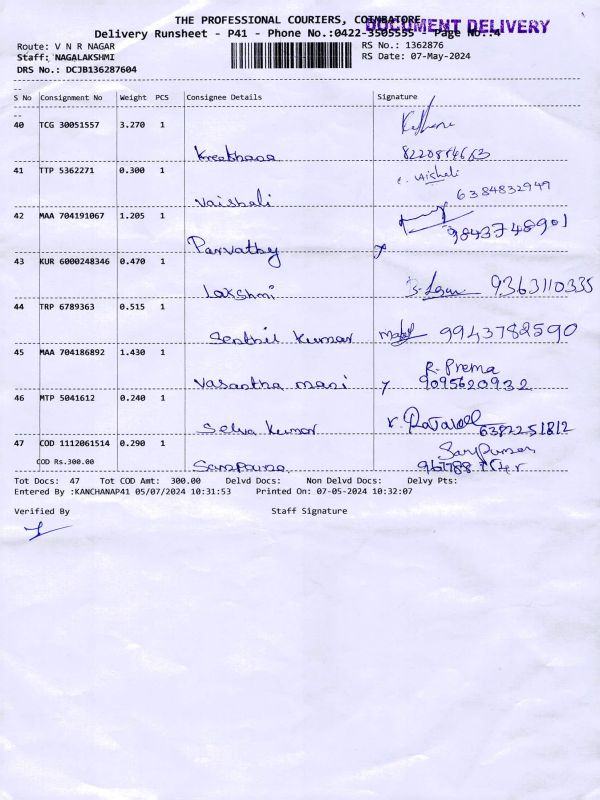 THE PROFESSIONAL COURIERS, COIMBATORE
DOCUMENT DELIVERY
Delivery Runsheet - P41 - Phone No.:0422-3505555 - Page No.:4
Route: V N R NAGAR
RS No.: 1362876
Staff: NAGALAKSHMI
RS Date: 07-May-2024
DRS No.: DCJB136287604
S No Consignment No Weight PCS Consignee Details Signature
40 TCG 30051557 3.270 1
Kreethana 8220854663
41 TTP 5362271 0.300 1
Vaishali 6384832949
42 MAA 704191067 1.205 1
Parvathy 9843748901
43 KUR 6000248346 0.470 1
Lakshmi 9363110335
44 TRP 6789363 0.515 1
Senthil Kumar 9943782590
45 MAA 704186892 1.430 1 R. Prema
Vasantha mani 9095620932
46 MTP 5041612 0.240 1
Selva Kumar 6382251812
47 COD 1112061514 0.290 1
COD Rs.300.00
Tot Docs: 47 Tot COD Amt: 300.00 Delvd Docs: Non Delvd Docs: Delvy Pts:
Entered By :KANCHANAP41 05/07/2024 10:31:53 Printed On: 07-05-2024 10:32:07
Verified By Staff Signature